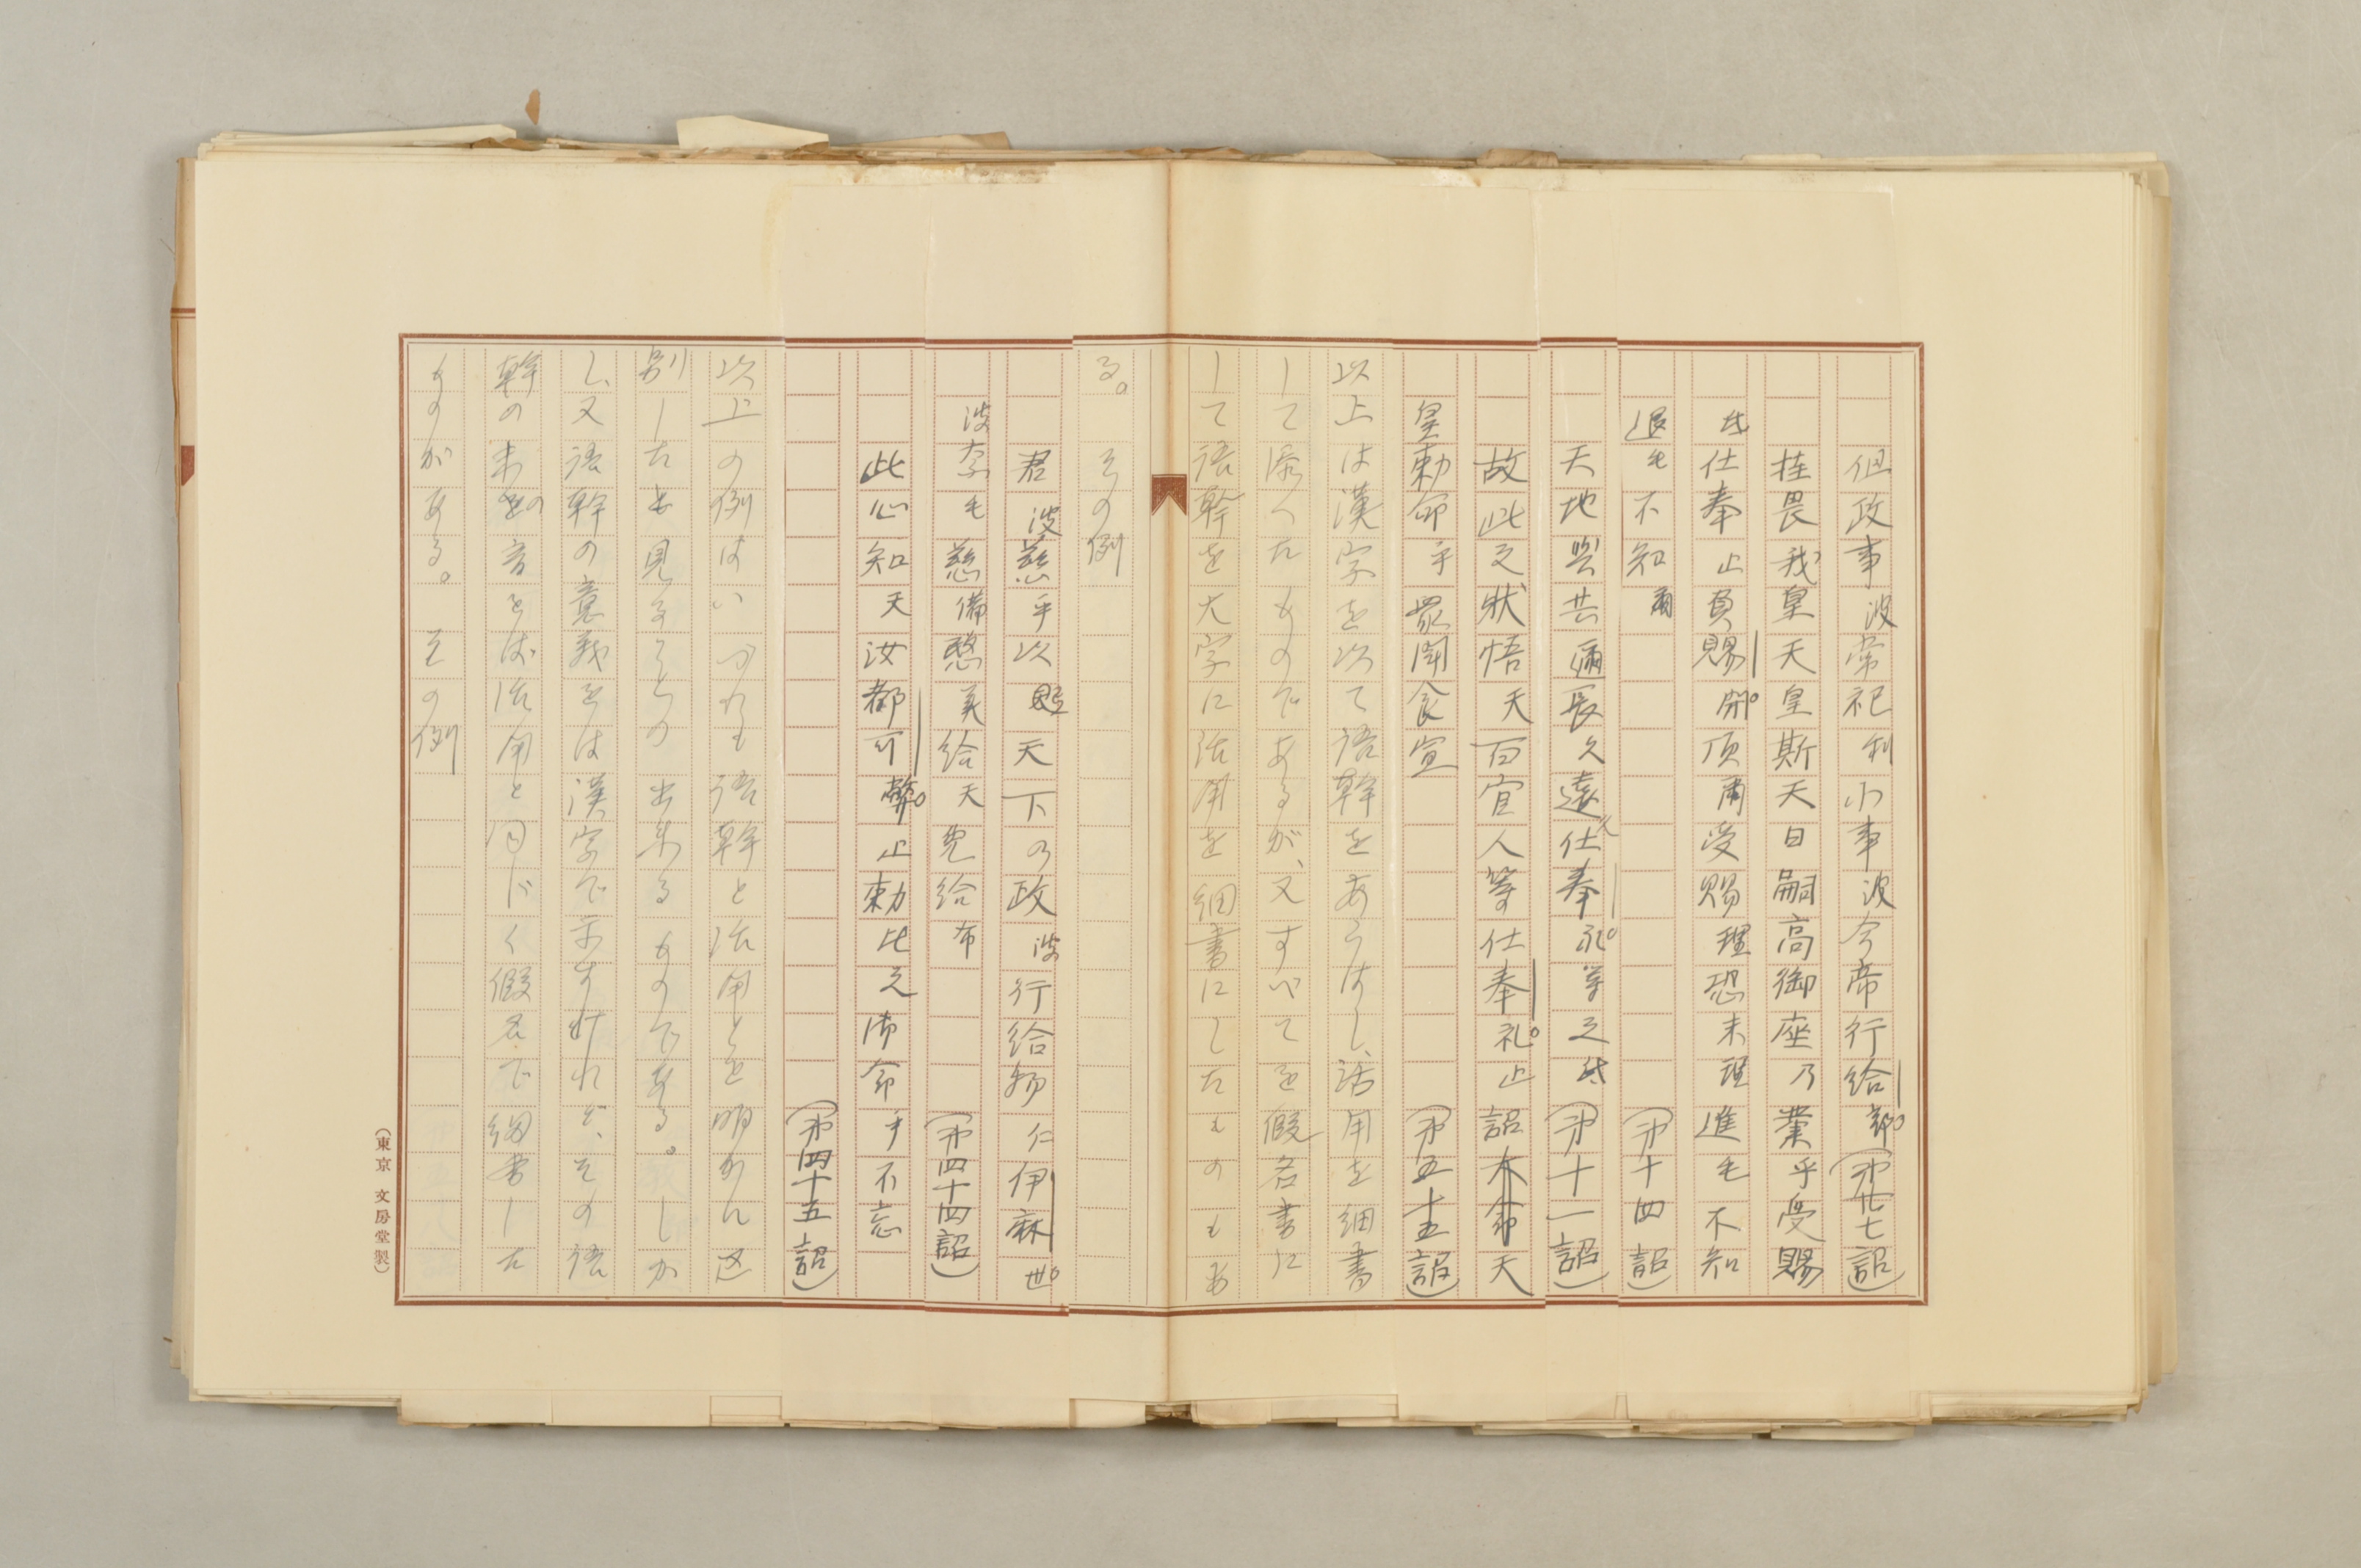 但政事波常祀利小事波今帝行給部（第廿七詔）
挂畏我皇天皇斯天日嗣高御座乃業乎受賜
弖仕奉止負賜閇頂爾受賜理恐末理進毛不知
退毛不知爾（第十四詔）
天地與共爾長久遠仕奉礼等之弖（第十一詔）
故此之状悟天百官人等仕奉礼止詔大命天
皇勅命乎衆聞食宣（第五十五詔）
以上は漢字を以て語幹をあらはし、活用を細書
して添へたものであるが、又すべてを假名書に
して語幹を大字に活用を細書にしたものもあ
る。その例
君波慈乎以天天下乃政波行給物仁伊麻世
波奈毛慈備愍美給天免給布（第四十四詔）
此心知天汝都可弊止勅比之御命乎不忘
（第四十五詔）
以上の例はいづれも語幹と活用とを明かに区
別したと見ることの出来るものである。しか
し、又語幹の意義をば漢字で示すけれど、その語
幹の末の音をば活用と同じく假名で細書した
ものがある。その例
（東京 文房堂製）